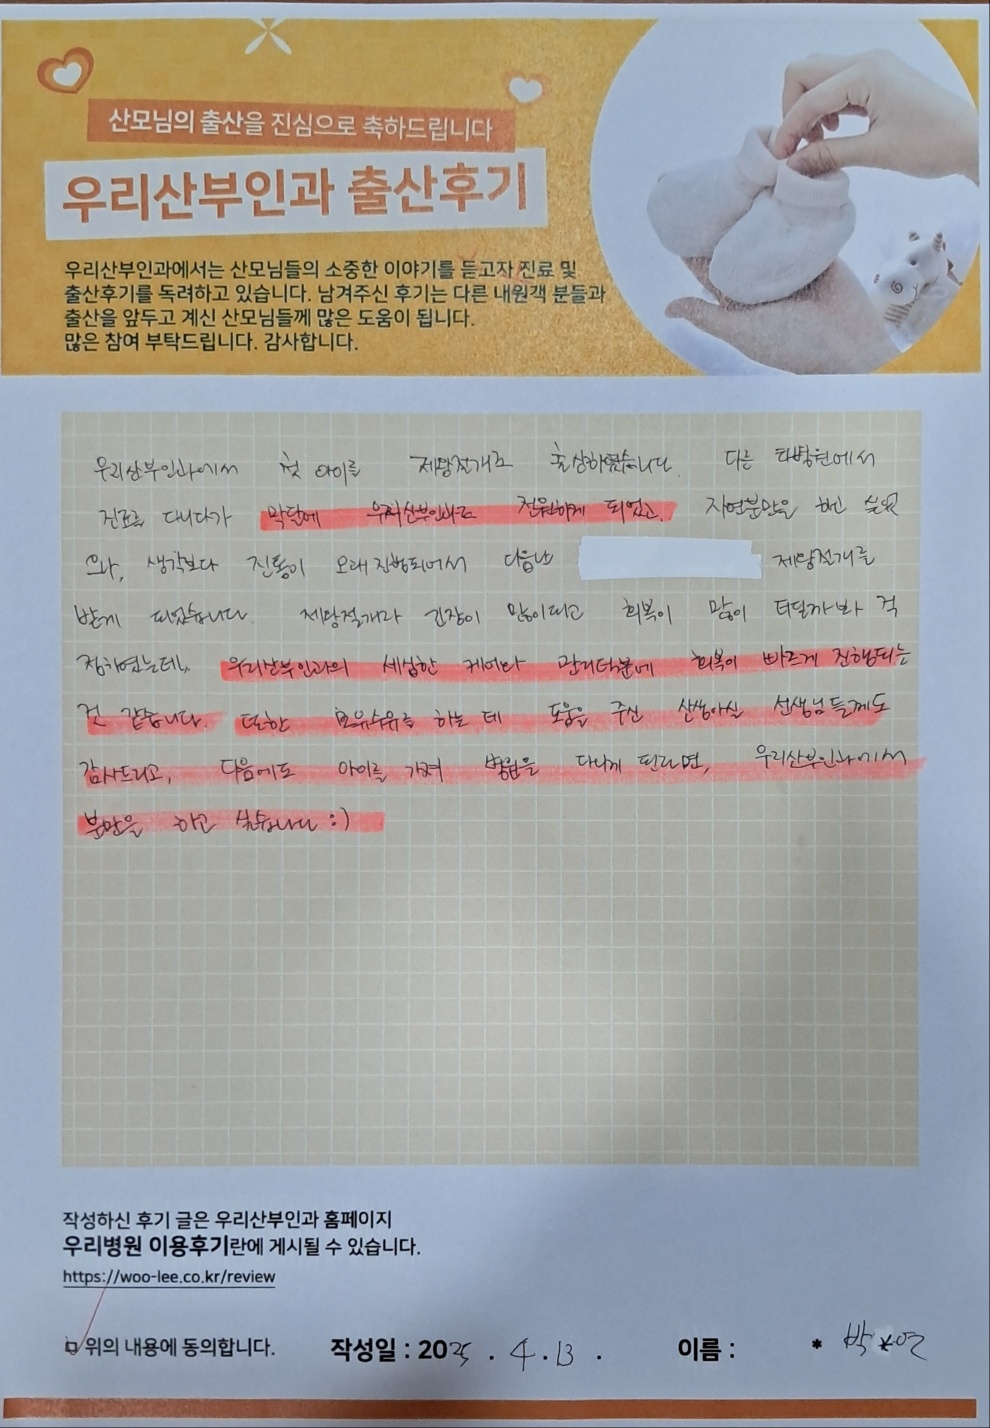 산모님의 출산을 진심으로 축하드립니다
우리산부인과 출산후기
우리산부인과에서는 산모님들의 소중한 이야기를 듣고자 진료 및
출산후기를 독려하고 있습니다. 남겨주신 후기는 다른 내원객 분들과
출산을 앞두고 계신 산모님들께 많은 도움이 됩니다.
많은 참여 부탁드립니다. 감사합니다.
우리산부인과에서 첫 아이를 제왕절개로 출산하였습니다. 다른 타병원에서
진료를 다니다가 막달에 우리산부인과로 전원하게 되었고, 자연분만을 하고
생각보다 진통이 오래 진행되어서 다음날 제왕절개를
받게 되었습니다. 제왕절개라 긴장이 많이되고 회복이 많이 더딜까봐 걱
정하였는데, 우리산부인과의 세심한 케어와 관리덕분에 회복이 빠르게 진행되는
것 같습니다. 또한 모유수유를 하는 데 도움을 주신 신생아실 선생님들께도
감사드리고, 다음에도 아이를 가져 병원을 다니게 된다면, 우리산부인과에서
분만을 하고 싶습니다 :)
작성하신 후기 글은 우리산부인과 홈페이지
우리병원 이용후기란에 게시될 수 있습니다.
https://woo-lee.co.kr/review
위의 내용에 동의합니다. 작성일 : 2025 . 4 . 13 . 이름 : * 박*연